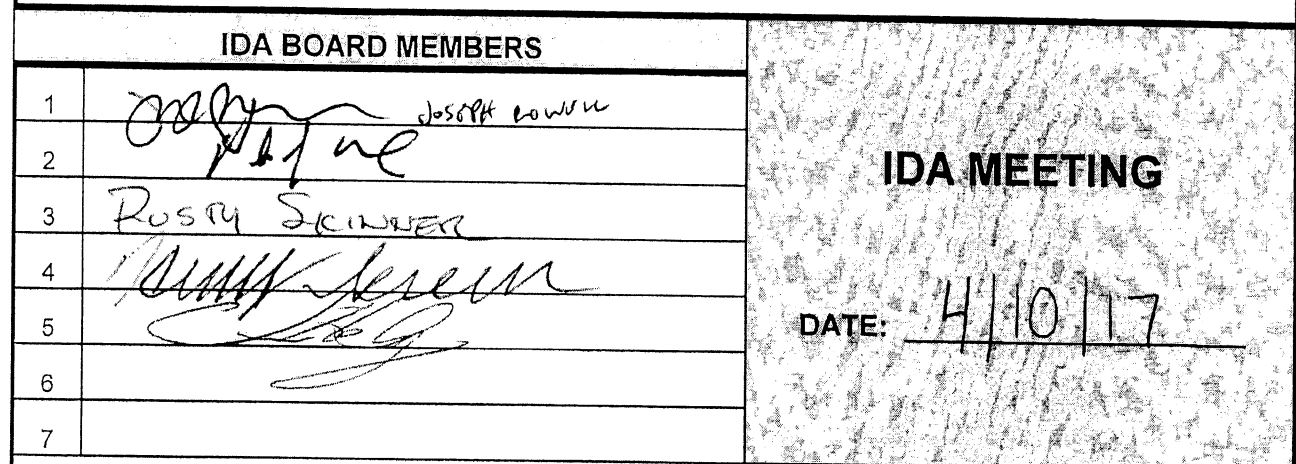 IDA BOARD MEMBERS
1 JOSEPH
2
3 RUSTY SKINNER
4
5
6
7
IDA MEETING
DATE: 4/10/17